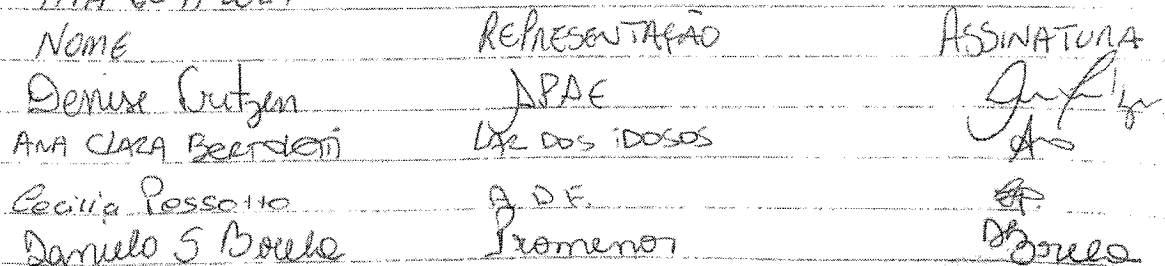 NOME REPRESENTAÇÃO ASSINATURA
Denise APAE
ANA CLARA Bertoletti LAR DOS IDOSOS Ana
Cecilia Possotto A D F. CP.
Danielo S Borela Promenor DBorela